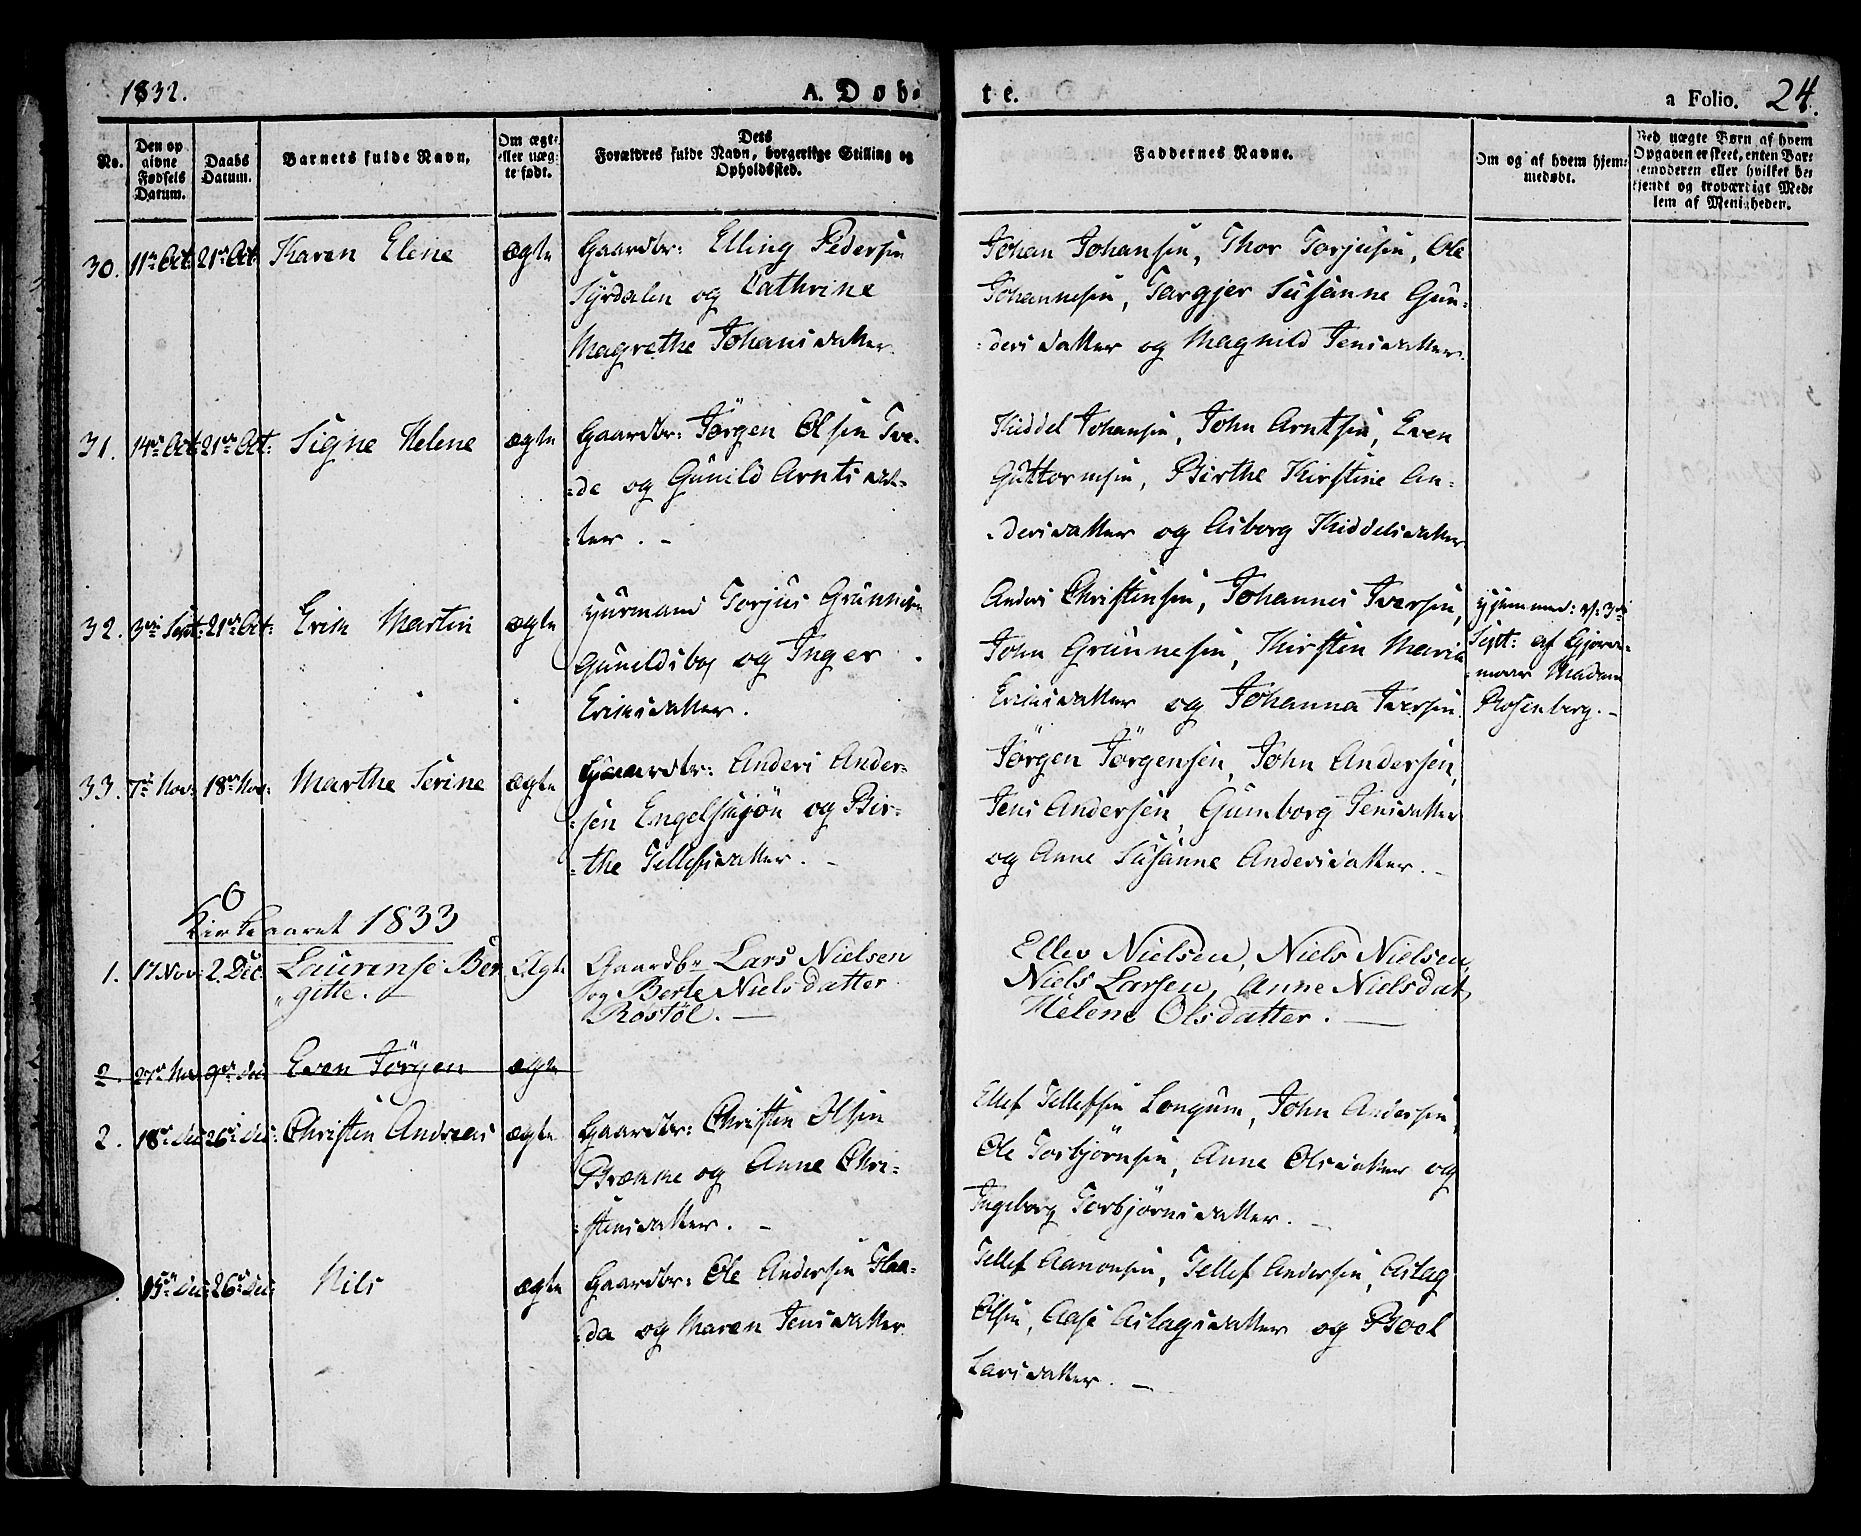 1832.
A. Døb-
te.
a Folio. 24.
No.
Den op
givne
Fødsels
Datum.
Daabs
Datum.
Barnets fulde Navn.
Om ægte
eller uæg-
te født.
Dets
Forældres fulde Navn, borgerlige Stilling og
Opholdssted.
Faddernes Navne.
Om og af hvem hjem-
medøbt.
Ved uægte Børn af hvem
Opgaven er skeet, enten Bar-
nemoderen eller hvilket be-
kjendt og troværdigt Med-
lem af Menigheden.
30. 11te Oct: 21de Oct: Karen Elene ægte Gaardbr: Elling Pedersen
Syrdalen og Cathrine
Magrethe Johansdatter.
Johan Johansen, Thor Torjusen, Ole
Johannesen, Targjer Susanne Gun-
-dersdatter og Magnild Jensdatter.
31. 14de Oct: 21de Oct: Signe Helene ægte Gaardbr: Jörgen Olsen Tve-
-de og Gunild Arntsdat-
-ter. -
Kiddel Johansen, John Arntsen, Even
Guttormsen, Birthe Kirstine An-
-dersdatter og Asborg Kiddelsdatter
32. 3die Sept: 21de Oct: Erik Martin ægte Huusmand Torjus Grunnesen
Gunildsboe og Inger
Eriksdatter.
Anders Christensen, Johannes Iversen,
John Grunnesen, Kirsten Maria
Eriksdatter og Johanna Iversen.
Hjemmed: d: 3die
Sept: af Gjorde-
-moer Madam
Rosenberg. -
33. 7de Nov: 18de Nov: Marthe Serine ægte Gaardbr: Anders Ander-
-sen Engelsmjön og Bir-
-the Tellefsdatter. -
Jörgen Jörgensen, John Andersen,
Jens Andersen, Gumborg Jensdatter
og Anne Susanne Andersdatter. -
Kirkeaaret 1833
1. 17 Nov: 2. Dec. Laurense Ber
"gitte. - Ægte Gaardbr Lars Nielsen
og Berte Nielsdatter
Röstöl. -
Ellev Nielsen, Niels Nielsen,
Niels Larsen, Anne Nielsdat,
Helene Olsdatter. -
2. 27de Nov 9de Dec Even Jörgen ægte
2. 18de Dec 26de Dec: Christen Andreas ægte Gaardbr: Christen Olsen
Brække og Anne Chri-
-stensdatter. -
Ellef Tellefsen Longum, John Andersen,
Ole Torbjörnsen, Anne Olsdatter og
Ingeborg Torbjörnsdatter. -
15de Dec: 26de Dec: Nils ægte Gaardbr: Ole Andersen Flaa-
-da og Maren Jensdatter.
Tellef Aanonsen, Tellef Andersen, Aslag
Olsen, Aase Aslagsdatter og Boel
Larsdatter. -